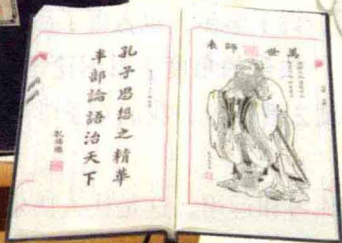 萬世師表
孔子思想之精華
半部論語治天下